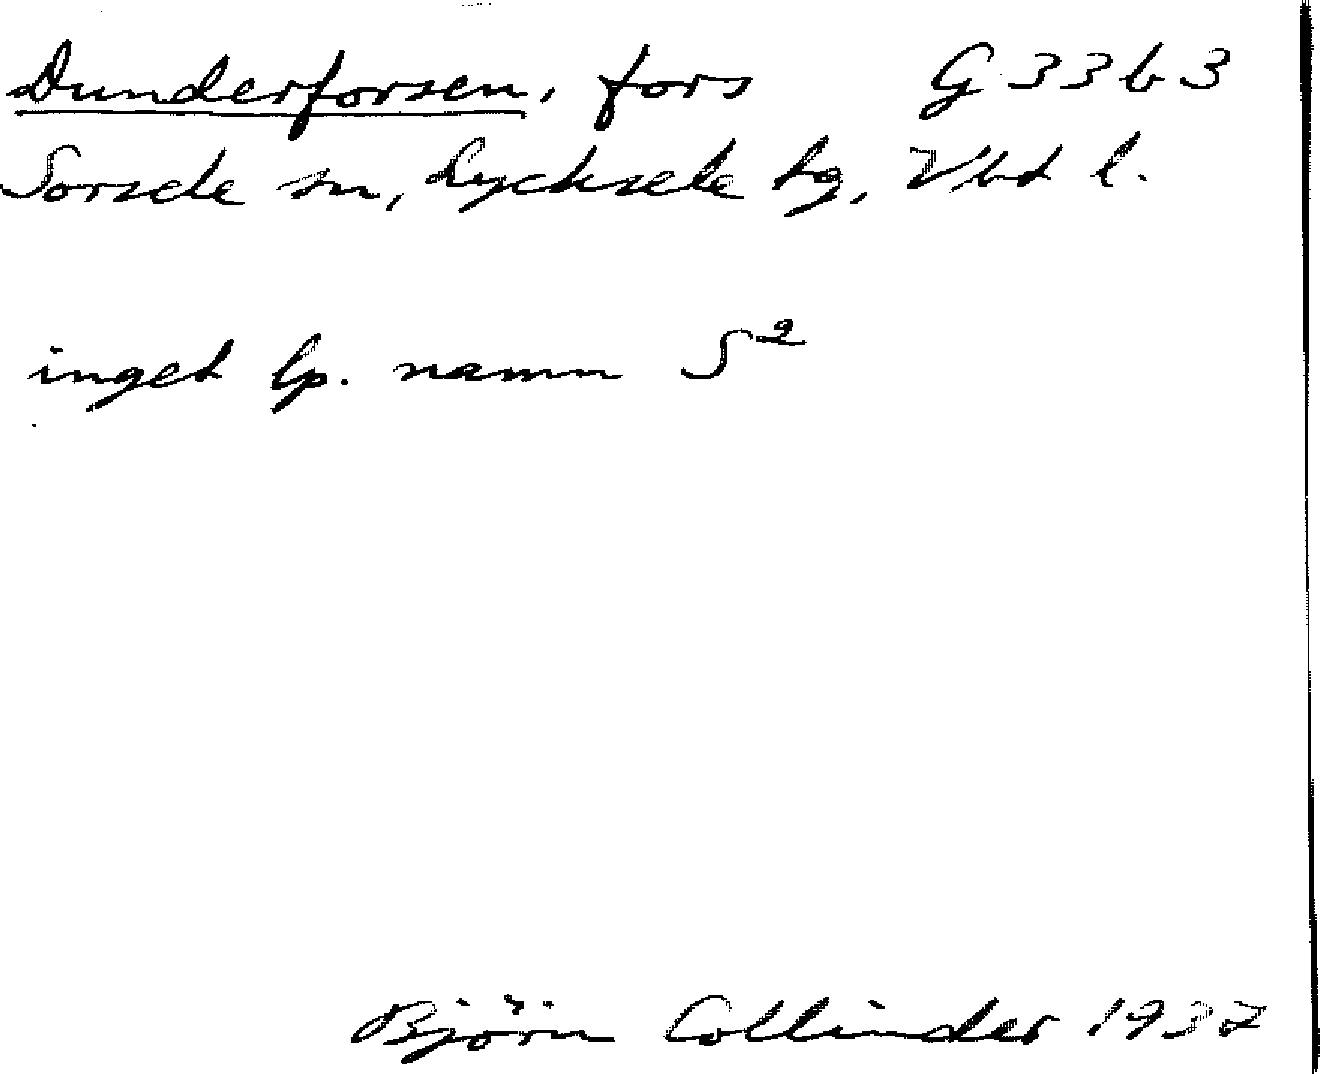 Dunderforsen, fors G 33 b 3
Sorsele sn, Lycksele tg, Vbt l.
inget lp. namn S²
Björn Collinder 1937